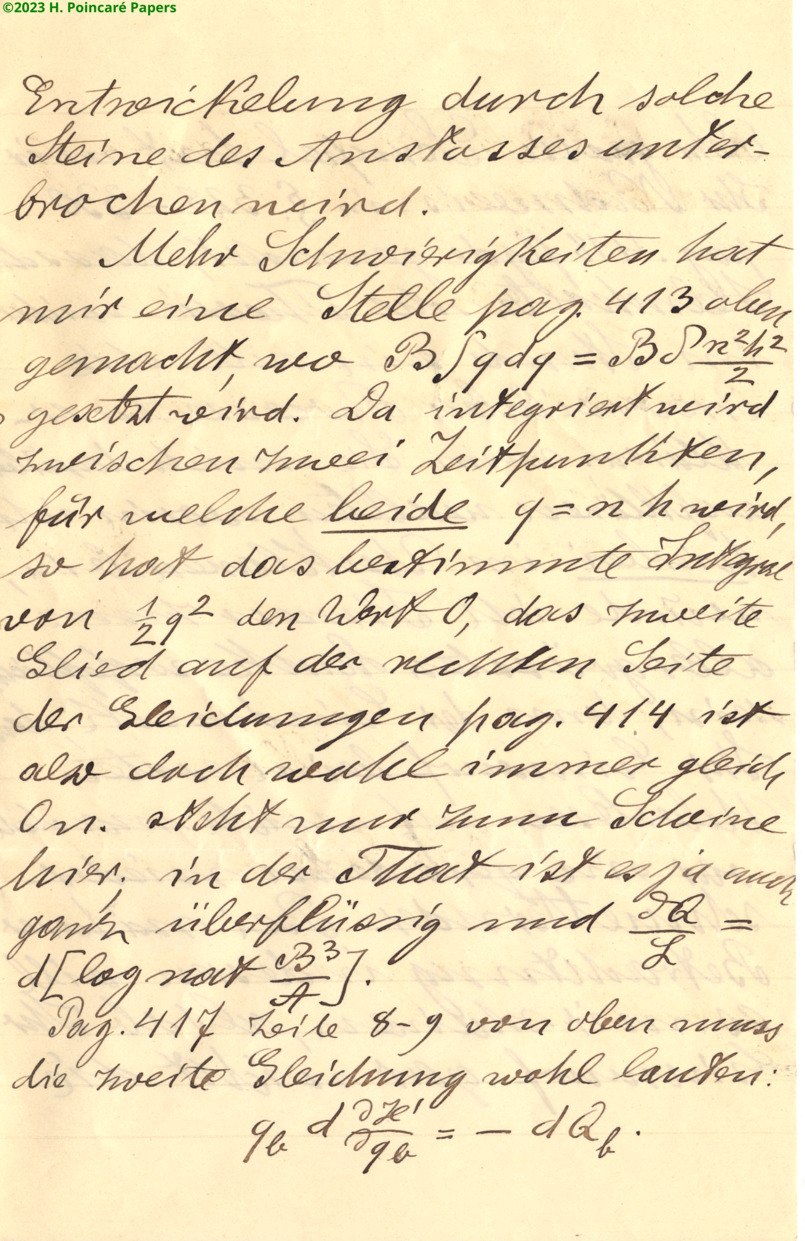 ©2023 H. Poincaré Papers
Entwickelung durch solche
Steine des Anstosses unter-
brochen wird.
Mehr Schwierigkeiten hat
mir eine Stelle pag. 413 oben
gemacht, wo B∫qdq = Bδ n²h²/2
gesetzt wird. Da integriert wird
zwischen zwei Zeitpunkten,
für welche beide q = n h wird,
so hat das bestimmte Integral
von 1/2 q² den Wert 0, das zweite
Glied auf der rechten Seite
der Gleichungen pag. 414 ist
also doch wohl immer gleich
0 u. steht nur zum Scheine
hier; in der That ist es ja auch
ganz überflüssig und ∂Q/L =
d[log nat B³/A].
Pag. 417 Zeile 8-9 von oben muss
die zweite Gleichung wohl lauten:
q_b d ∂H'/∂q_b = - dQ_b.